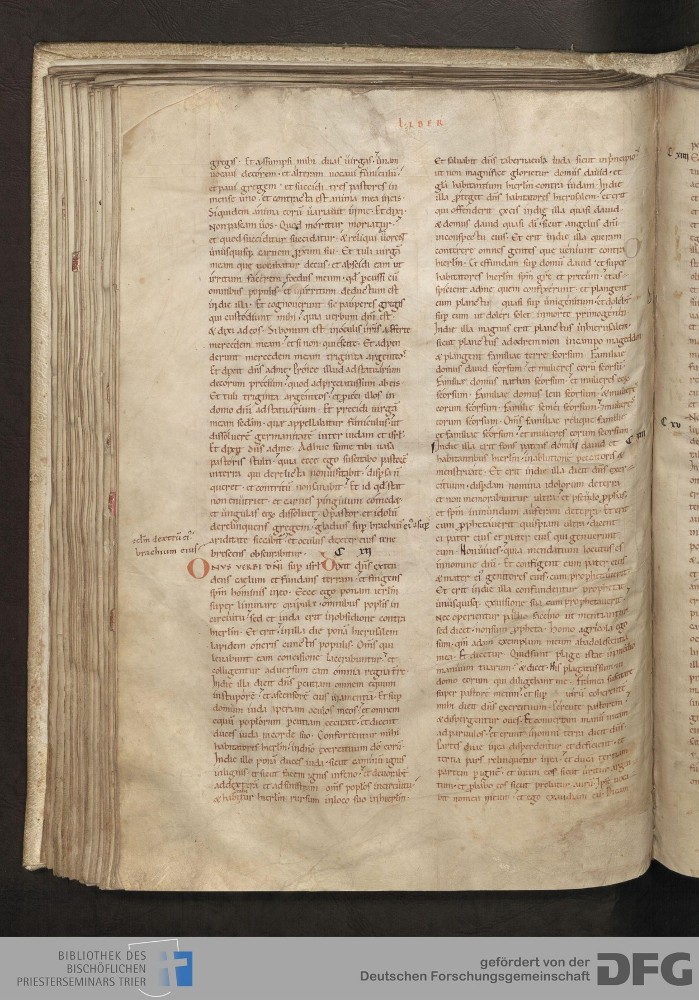 LIBER
gregis. Et assumpsi mihi duas uirgas. unam
uocaui decorem. et alteram uocaui funiculu.
et paui gregem. et succidi tres pastores in
mense uno. et contracta est anima mea in eis
Siquidem anima eoru uariauit in me. Et dixi.
Non pascam uos. Quod moritur moriatur.
et quod succiditur succidatur. & reliqui uorent
unusquisq; carnem proximi sui. Et tuli uirga
meam que uocabatur decus. et abscidi eam ut
irritum facerem foedus meum. qd pcussi cu
omnibus populis. et in irritum deductum est
in die illa. Et cognouerunt sic pauperes gregis
qui custodiunt mihi. quia uerbum dni est.
& dixi ad eos. Si bonum est in oculis uris afferte
mercedem meam. et si non quiescite. Et appen
derunt mercedem meam triginta argenteos.
Et dixit dns ad me. Proice illud ad statuarium
decorum precium. quod appreciatus sum ab eis.
Et tuli triginta argenteos. et pieci illos in
domo dni ad statuarium. Et precidi uirga
meam scdam. que appellabatur funiculus. ut
dissoluere germanitate inter iudam et isrl.
Et dixit dns ad me. Adhuc sume tibi uasa
pastoris stulti. quia ecce ego suscitabo pastore
in terra qui derelicta non uisitabit. dispsa n
queret. et contritu non sanabit. Et id qd stat
non enutriet. et carnes pinguium comedet
et ungulas eoru dissoluet. O pastor et idolu
derelinquens gregem. gladius sup brachiu ei & sup
celm dextru ei.
brachium eius
ariditate siccabit. et oculus dexter eius tene
brescens obscurabitur. C XII
ONUS VERBI DNI sup isrl. Dixit dns exten
dens caelum et fundans terram. et fingens
spm hominis in eo. Ecce ego ponam ierlm
super liminare crapule. omnibus poplis in
circuitu. sed et iuda erit in obsidione contra
hierlm. Et erit. in illa die pona hierusalem
lapidem oneris cunctis populis. Oms qui
leuabunt eam concisione lacerabuntur. et
colligentur aduersum eam omnia regna tre.
In die illa dicit dns pcutiam omnem equum
in stupore. et ascensore eius in amentia. Et sup
domum iuda aperiam oculos meos. et omnem
equu poplorum pcutiam cecitate. et dicent
duces iuda in corde suo. Confortentur mihi
habitatores hierlm. in dno exercituum do eoru.
In die illo pona duces iuda. sicut camini ignis
in lignis. et sicut facem ignis in feno. et deuorabt
ad dextera et ad sinistram. oms poplos in circuitu.
& habitabitur hierlm rursum in loco suo in hierlm.
Et saluabit dns tabernacula iuda sicut in principio
ut non magnifice glorietur domus dauid. et
gla habitantium hierlm contra iudam. In die
illa. proteget dns habitatores hierusalem. et erit
qui offenderit ex eis in die illa quasi dauid.
& domus dauid quasi di. sicut angelus dni
in conspectu eius. Et erit in die illa queram
conterere omnes gentes que ueniunt contra
hierlm. Et effundam sup domu dauid et super
habitatores hierlm spm gre et precum. et as
picient ad me quem confixerunt. et plangent
eum planctu quasi sup unigenitum. et dolebt
sup eum ut doleri solet in morte primogeniti
In die illa magnus erit planctus in hierusalem.
sicut planctus adadremmon in campo mageddon
& plangent familiae terre seorsum. Familiae
domus dauid seorsum. et mulieres eoru seorsu.
Familiae domus nathan seorsum. et mulieres eoru
seorsum. Familiae domus leui seorsum. & mulieres
eorum seorsum. Familie semei seorsum. & mulieres
eorum seorsum. Oms familiae relique. familie
et familiae seorsum. et mulieres eorum seorsum. C XIII
In die illa erit fons patens domui dauid et
habitantibus hierlm. in ablutione peccatoris &
menstruate. Et erit in die illa dicit dns exer
cituum. dispdam nomina idolorum de terra
et non memorabuntur ultra. et pseudo pphas
et spm inmundum auferam de terra. Et erit
cum pphetauerit quispiam ultra. dicent
ei pater eius et mater eius qui genuerunt
eum. Non uiues. quia mendatium locutus es
in nomine dni. Et configent eum pater eius
& mater ei genitores eius. cum pphetauerit.
Et erit in die illa confundentur prophetae
unusquisq; ex uisione sua cum prophetauerit.
Nec operientur pallio saccino ut mentiantur.
sed dicet. non sum ppheta. homo agricola ego
sum. qm adam exemplum meum ab adolescentia
mea. Et dicetur. Quid sunt plage iste in medio
manuum tuarum. & dicet. His plagatus sum in
domo eorum qui diligebant me. Framea suscitare
super pastore meum. et sup uiru coherente
mihi dicit dns exercituum. Percute pastorem.
& dispergentur oues. Et conuertam manu meam
ad paruulos. et erunt in omni terra dicit dns.
Partes duae in ea disperdentur et deficient. et
tercia pars relinquetur in ea. et duca terciam
partem p igne. et uram eos sicut uritur argen
tum. et probabo eos sicut probatur auru. Ipse uoca
bit nomen meum. et ego exaudiam eu. Dicam
C XIIII
C XV
BIBLIOTHEK DES
BISCHÖFLICHEN
PRIESTERSEMINARS TRIER
gefördert von der
Deutschen Forschungsgemeinschaft
DFG